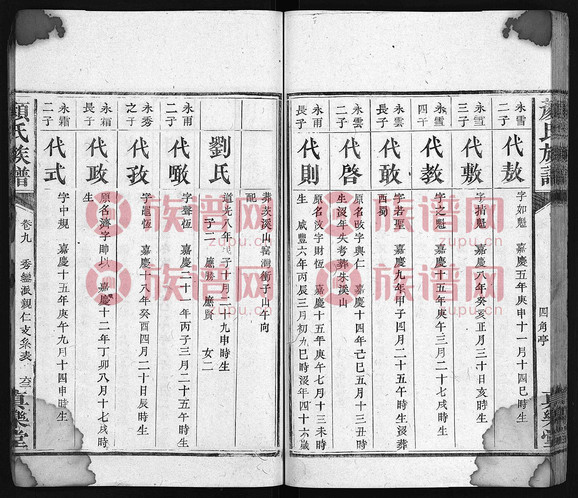 顏氏族譜
四角亭
貞樂堂
永雪二子
代敖
字如魁 嘉慶五年庚申十一月十四巳時生
永雪三子
代敷
字指魁 嘉慶八年癸亥正月三十日亥時生
永雲四子
代教
字之魁 嘉慶十五年庚午七月十三戌時生
永雲長子
代敢
字若聖 嘉慶九年甲子四月二十五午時生沒葬
西蜀
永雲二子
代啓
原名政字興仁 嘉慶十年己丑五月十三丑時
生沒年失考葬朱溪山
永雨長子
代則
原名汝字財恆 嘉慶十五年庚午七月十三未時
生 咸豐六年丙辰三月初九巳時沒年四十六歲
葬茨溪山 子山午向
配
劉氏
道光八年戊子十月二十九申時生
子二 應勝 應賢 女二
永雨二子
代噉
字聲恆 嘉慶二十一年丙子三月二十二寅時生
永秀之子
代孜
字電恆 嘉慶十八年癸酉四月二十日辰時生
永霜長子
代政
原名濟字聊以 嘉慶十二年丁卯八月十七戌時
生
永霜二子
代式
字中規 嘉慶十五年庚午九月十四申時生
顏氏族譜
卷九
秀巒派親仁支系表
貞樂堂
族谱网
zupu.cn